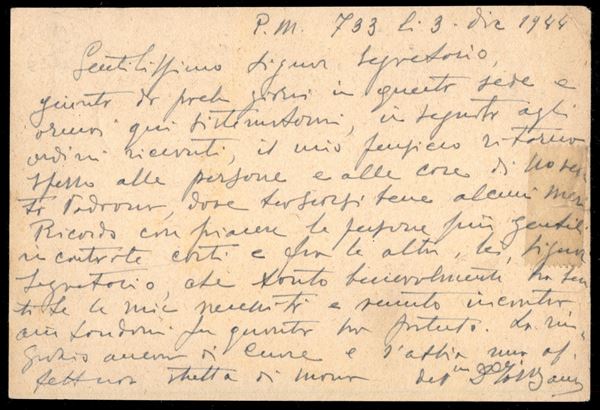 P.M. 733 li 3. dic 1944
Gentilissimo Signor Segretario,
giunto da pochi giorni in questa sede e
ormai qui sistematomi, in seguito agli
ordini ricevuti, il mio pensiero ritorna
spesso alle persone e alle cose di
dove trascorsi bene alcuni mesi
Ricordo con piacere le persone più gentili
incontrate costì e fra le altre, lei, signor
Segretario, che tanto benevolmente ha sen
tite le mie necessità e venuto incontro
aiutandomi in quanto ha potuto. La rin=
grazio ancora di cuore e s'abbia una af
fettuosa stretta di mano